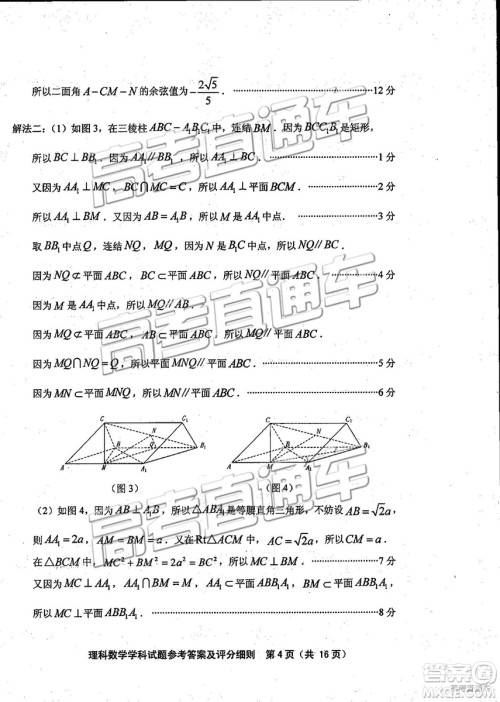 所以二面角 A－CM－N 的余弦值为 －2√5/5．…………12 分
解法二：（1）如图 3，在三棱柱 ABC－A₁B₁C₁ 中，连结 BM．因为 BCC₁B₁ 是矩形，
所以 BC⊥BB₁，因为 AA₁∥BB₁，所以 AA₁⊥BC．…………1 分
又因为 AA₁⊥MC，BC⋂MC＝C，所以 AA₁⊥平面 BCM．…………2 分
所以 AA₁⊥BM，又因为 AB＝A₁B，所以 M 是 AA₁ 中点．…………3 分
取 BB₁ 中点 Q，连结 NQ，因为 N 是 B₁C 中点，所以 NQ∥BC，
因为 NQ⊄平面 ABC，BC⊂平面 ABC，所以 NQ∥平面 ABC．…………4 分
因为 M 是 AA₁ 中点，所以 MQ∥AB，
因为 MQ⊄平面 ABC，AB⊂平面 ABC，所以 MQ∥平面 ABC．
因为 MQ⋂NQ＝Q，所以平面 MNQ∥平面 ABC．…………5 分
因为 MN⊂平面 MNQ，所以 MN∥平面 ABC．…………6 分
C C₁ N B Q B₁ A M A₁
C C₁ N B B₁ A M A₁
（图 3）
（图 4）
（2）如图 4，因为 AB⊥A₁B，所以△ABA₁ 是等腰直角三角形，不妨设 AB＝√2a，
则 AA₁＝2a，BM＝AM＝a．又在 Rt△ACM 中，AC＝√2a，所以 CM＝a．
在△BCM 中，CM²＋BM²＝2a²＝BC²，所以 MC⊥BM，…………7 分
又因为 MC⊥AA₁，AA₁⋂BM＝M，AA₁⊂平面 ABB₁A₁，BM⊂平面 ABB₁A₁，
所以 MC⊥平面 ABB₁A₁．…………8 分
理科数学学科试题参考答案及评分细则 第 4 页（共 16 页）
高考直通车
高考直通车
高考直通车